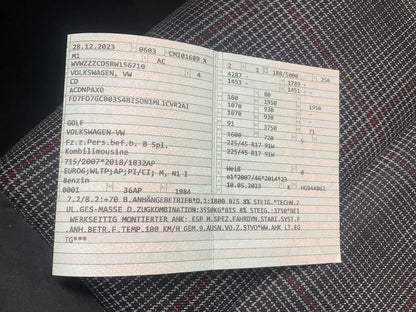 28.12.2023 0603 CMI01689 X
M1 AC
WVWZZZCD5RW156710
VOLKSWAGEN, VW 4
CD
ACDNPAX0
FD7FD7GC003S4BISON1ML1CVR2AI
GOLF
VOLKSWAGEN-VW
Fz.z.Pers.bef.b. 8 Spl.
Kombilimousine
715/2007*2018/1832AP
EURO6;WLTP;AP;PI/CI; M, N1 I
Benzin
0001 36AP 1984
2 1 180/5000 250
4287 - 1789 -
1453 1451
160 80 -
1950 - 1950
1070 930 -
1070 930 -
91 3750 71
1600 720 5
225/45 R17 91H
225/45 R17 91H
Weiß
e1*2007/46*2014*23
10.05.2023 K
7.2/8.2:+70 B.ANHÄNGEBETRIEB*O.1:1800 BIS 8% STEIG.*TECHN.Z
UL.GES-MASSE D.ZUGKOMBINATION:3550KG*BIS 8% STEIG.:3750*BEI
WERKSEITIG MONTIERTER AHK: ESP M.SPEZ.FAHRDYN.STABI.SYST.F
.ANH.BETR.F.TEMP.100 KM/H GEM.9.AUSN.VO.Z.STVO*WW.AHK LT.EG
TG***